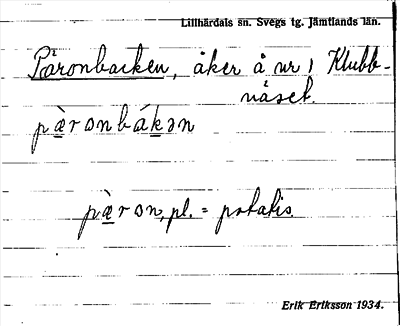 Lillhärdals sn. Svegs tg. Jämtlands län.
Päronbacken, åker å nr 1 Klubb-
näset.
pæ̀rɷnbákən
pæ̀rɷn, pl. = potatis.
Erik Eriksson 1934.